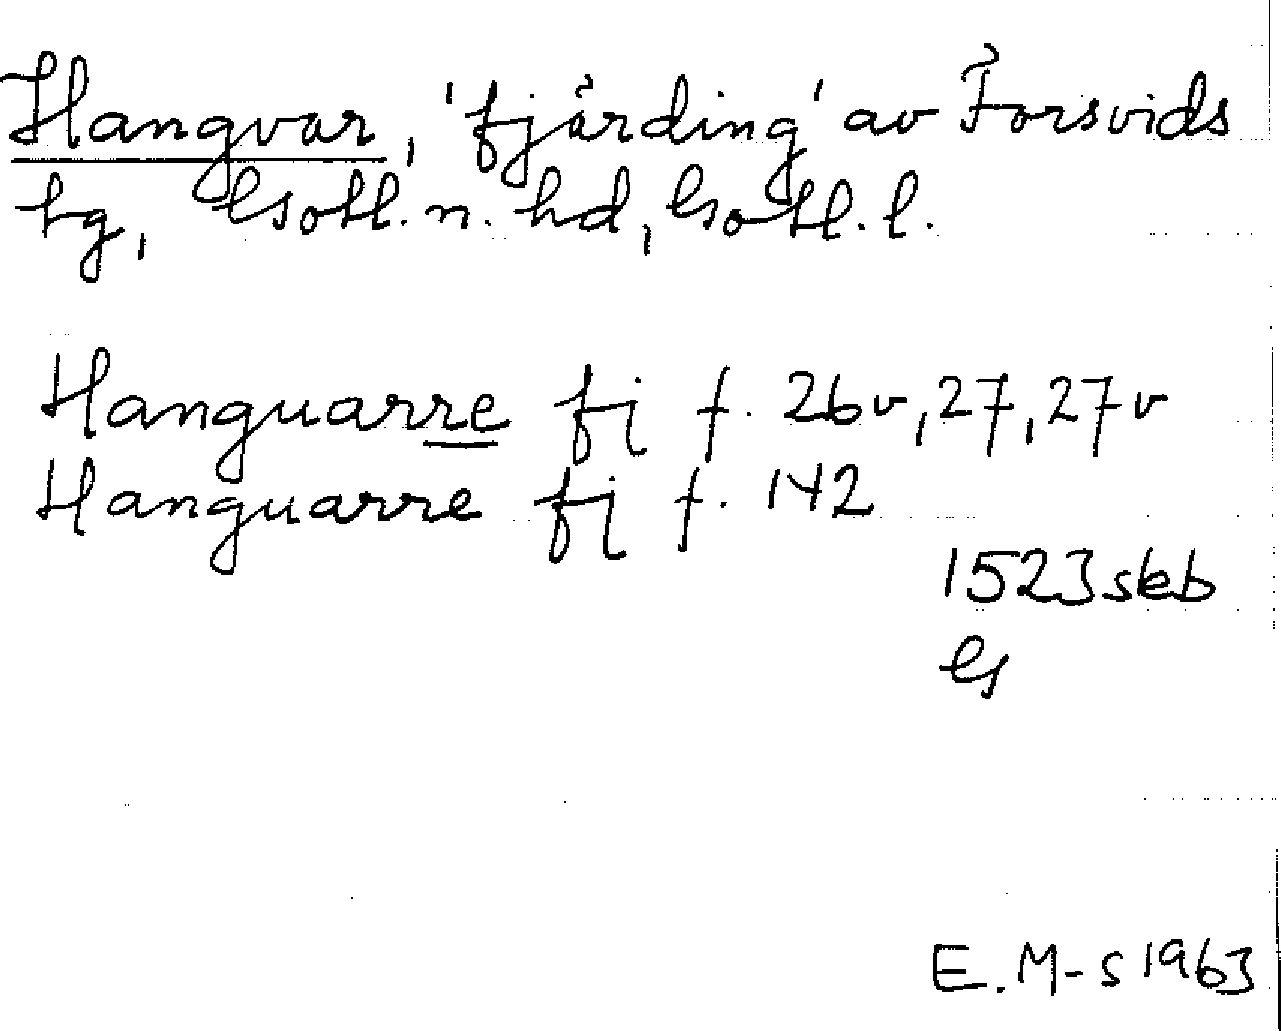 Hangvar, 'fjärding' av Forsvids
tg, Gotl. n. hd, Gotl. l.
Hanguarre fj f. 26v, 27, 27v
Hanguarre fj f. 142
1523 skb
G
E. M-s 1963